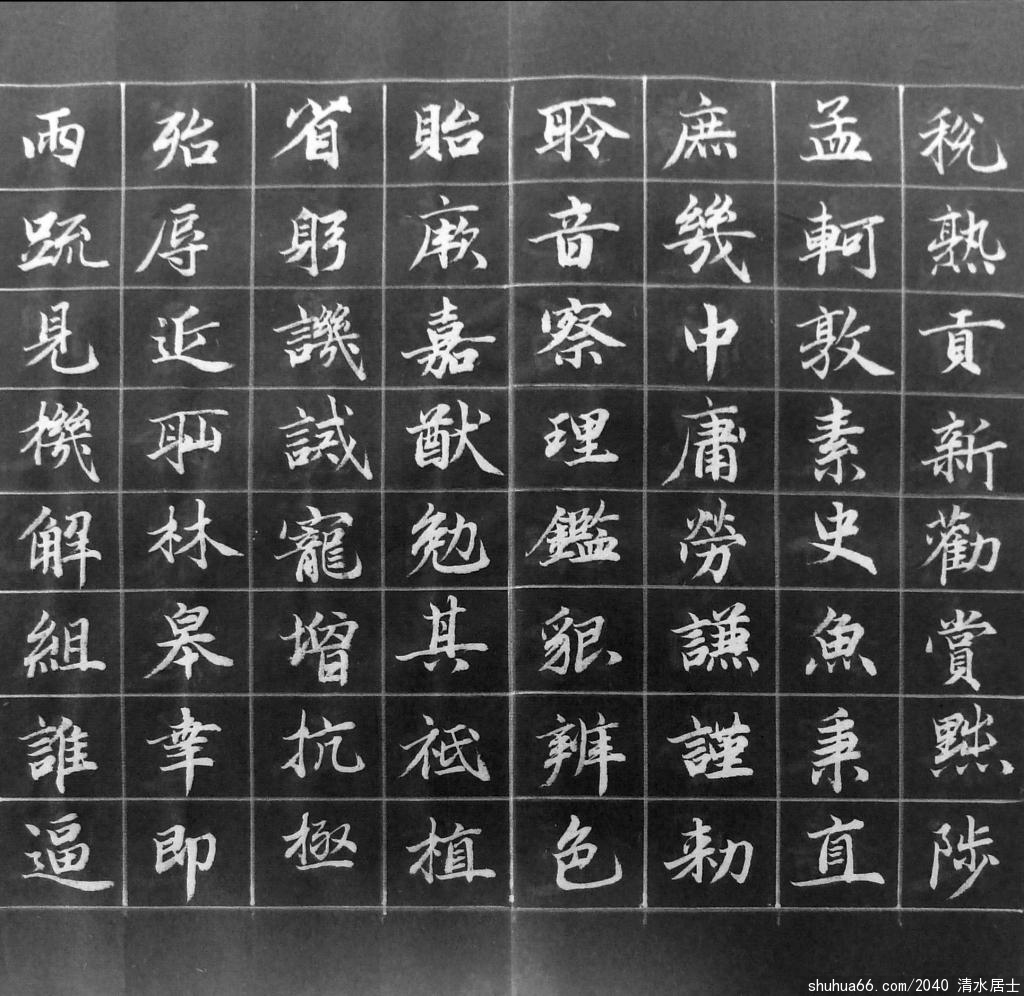 稅熟貢新勸賞黜陟
孟軻敦素史魚秉直
庶幾中庸勞謙謹勅
聆音察理鑑貌辨色
貽厥嘉猷勉其祗植
省躬譏誡寵增抗極
殆辱近恥林皋幸即
兩疏見機解組誰逼
shuhua66.com/2040 清水居士